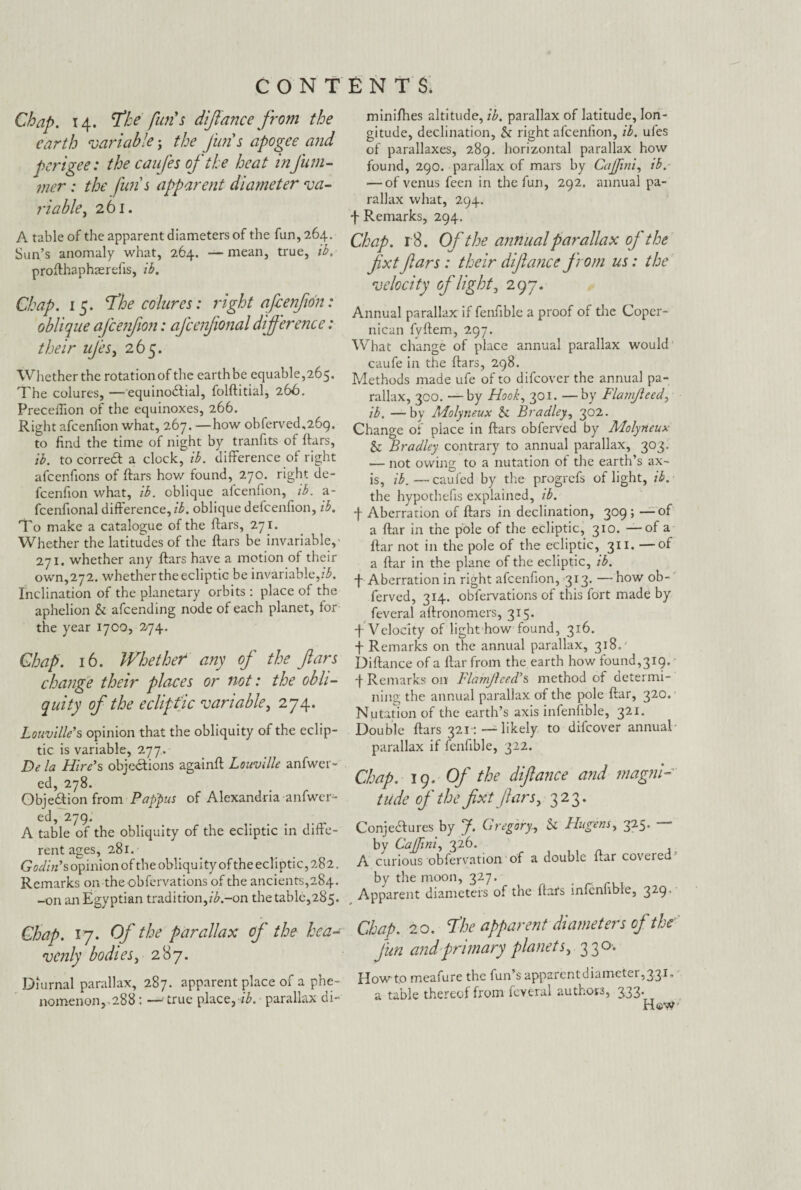 CONTENTS.
Chap. 14. The ſun's diſtance from the
earth variable; the ſun's apogee and
perigee: the cauſes of the heat in ſum-
mer: the ſun's apparent diameter va-
riable, 261.
A table of the apparent diameters of the ſun, 264.
Sun's anomaly what, 264. — mean, true, ib.
proſthaphærefis, ib.
Chap. 15. The colures: right aſcenſion:
oblique aſcenſion: aſcenſional difference:
their uſes, 265.
Whether the rotation of the earth be equable, 265.
The colures, — equinoctial, ſolſtitial, 266.
Preceſſion of the equinoxes, 266.
Right aſcenſion what, 267. — how obſerved, 269.
to find the time of night by tranſits of ſtars,
ib. to correct a clock, ib. difference of right
aſcenſions of ſtars how found, 270. right de-
ſcenſion what, ib. oblique aſcenſion, ib. a-
ſcenſional difference, ib. oblique deſcenſion, ib.
To make a catalogue of the ſtars, 271.
Whether the latitudes of the ſtars be invariable,
271. whether any ſtars have a motion of their
own, 272. whether the ecliptic be invariable, ib.
Inclination of the planetary orbits: place of the
aphelion & aſcending node of each planet, for
the year 1700, 274.
Chap. 16. Whether any of the ſtars
change their places or not: the obli-
quity of the ecliptic variable, 274.
Louville's opinion that the obliquity of the eclip-
tic is variable, 277.
De la Hire's objections againſt Louville anſwer-
ed, 278.
Objection from Pappus of Alexandria anſwer-
ed, 279.
A table of the obliquity of the ecliptic in diffe-
rent ages, 281.
Godin's opinion of the obliquity of the ecliptic, 282.
Remarks on the obſervations of the ancients, 284.
-on an Egyptian tradition, ib.-on the table, 285.
Chap. 17. Of the parallax of the hea-
venly bodies, 287.
Diurnal parallax, 287. apparent place of a phe-
nomenon, 288: — true place, ib. parallax di-
miniſhes altitude, ib. parallax of latitude, lon-
gitude, declination, & right aſcenſion, ib. uſes
of parallaxes, 289. horizontal parallax how
found, 290. parallax of mars by Caſſini, ib.
— of venus ſeen in the ſun, 292. annual pa-
rallax what, 294.
† Remarks, 294.
Chap. 18. Of the annual parallax of the
fixt ſtars: their diſtance from us: the
velocity of light, 297.
Annual parallax if ſenſible a proof of the Coper-
nican ſyſtem, 297.
What change of place annual parallax would
cauſe in the ſtars, 298.
Methods made uſe of to diſcover the annual pa-
rallax, 300. — by Hook, 301. — by Flamſteed,
ib. — by Molyneux & Bradley, 302.
Change of place in ſtars obſerved by Molyneux
& Bradley contrary to annual parallax, 303.
— not owing to a nutation of the earth's ax-
is, ib. — cauſed by the progreſs of light, ib.
the hypotheſis explained, ib.
† Aberration of ſtars in declination, 309; — of
a ſtar in the pole of the ecliptic, 310. — of a
ſtar not in the pole of the ecliptic, 311. — of
a ſtar in the plane of the ecliptic, ib.
† Aberration in right aſcenſion, 313. — how ob-
ſerved, 314. obſervations of this ſort made by
ſeveral aſtronomers, 315.
† Velocity of light how found, 316.
† Remarks on the annual parallax, 318.
Diſtance of a ſtar from the earth how found, 319.
† Remarks on Flamſteed's method of determi-
ning the annual parallax of the pole ſtar, 320.
Nutation of the earth's axis inſenſible, 321.
Double ſtars 321: — likely to diſcover annual
parallax if ſenſible, 322.
Chap. 19. Of the diſtance and magni-
tude of the fixt ſtars, 323.
Conjectures by J. Gregory, & Hugens, 325. —
by Caſſini, 326.
A curious obſervation of a double ſtar covered
by the moon, 327.
Apparent diameters of the ſtars inſenſible, 329.
Chap. 20. The apparent diameters of the
ſun and primary planets, 330.
How to meaſure the ſun's apparent diameter, 331.
a table thereof from ſeveral authors, 333.
How